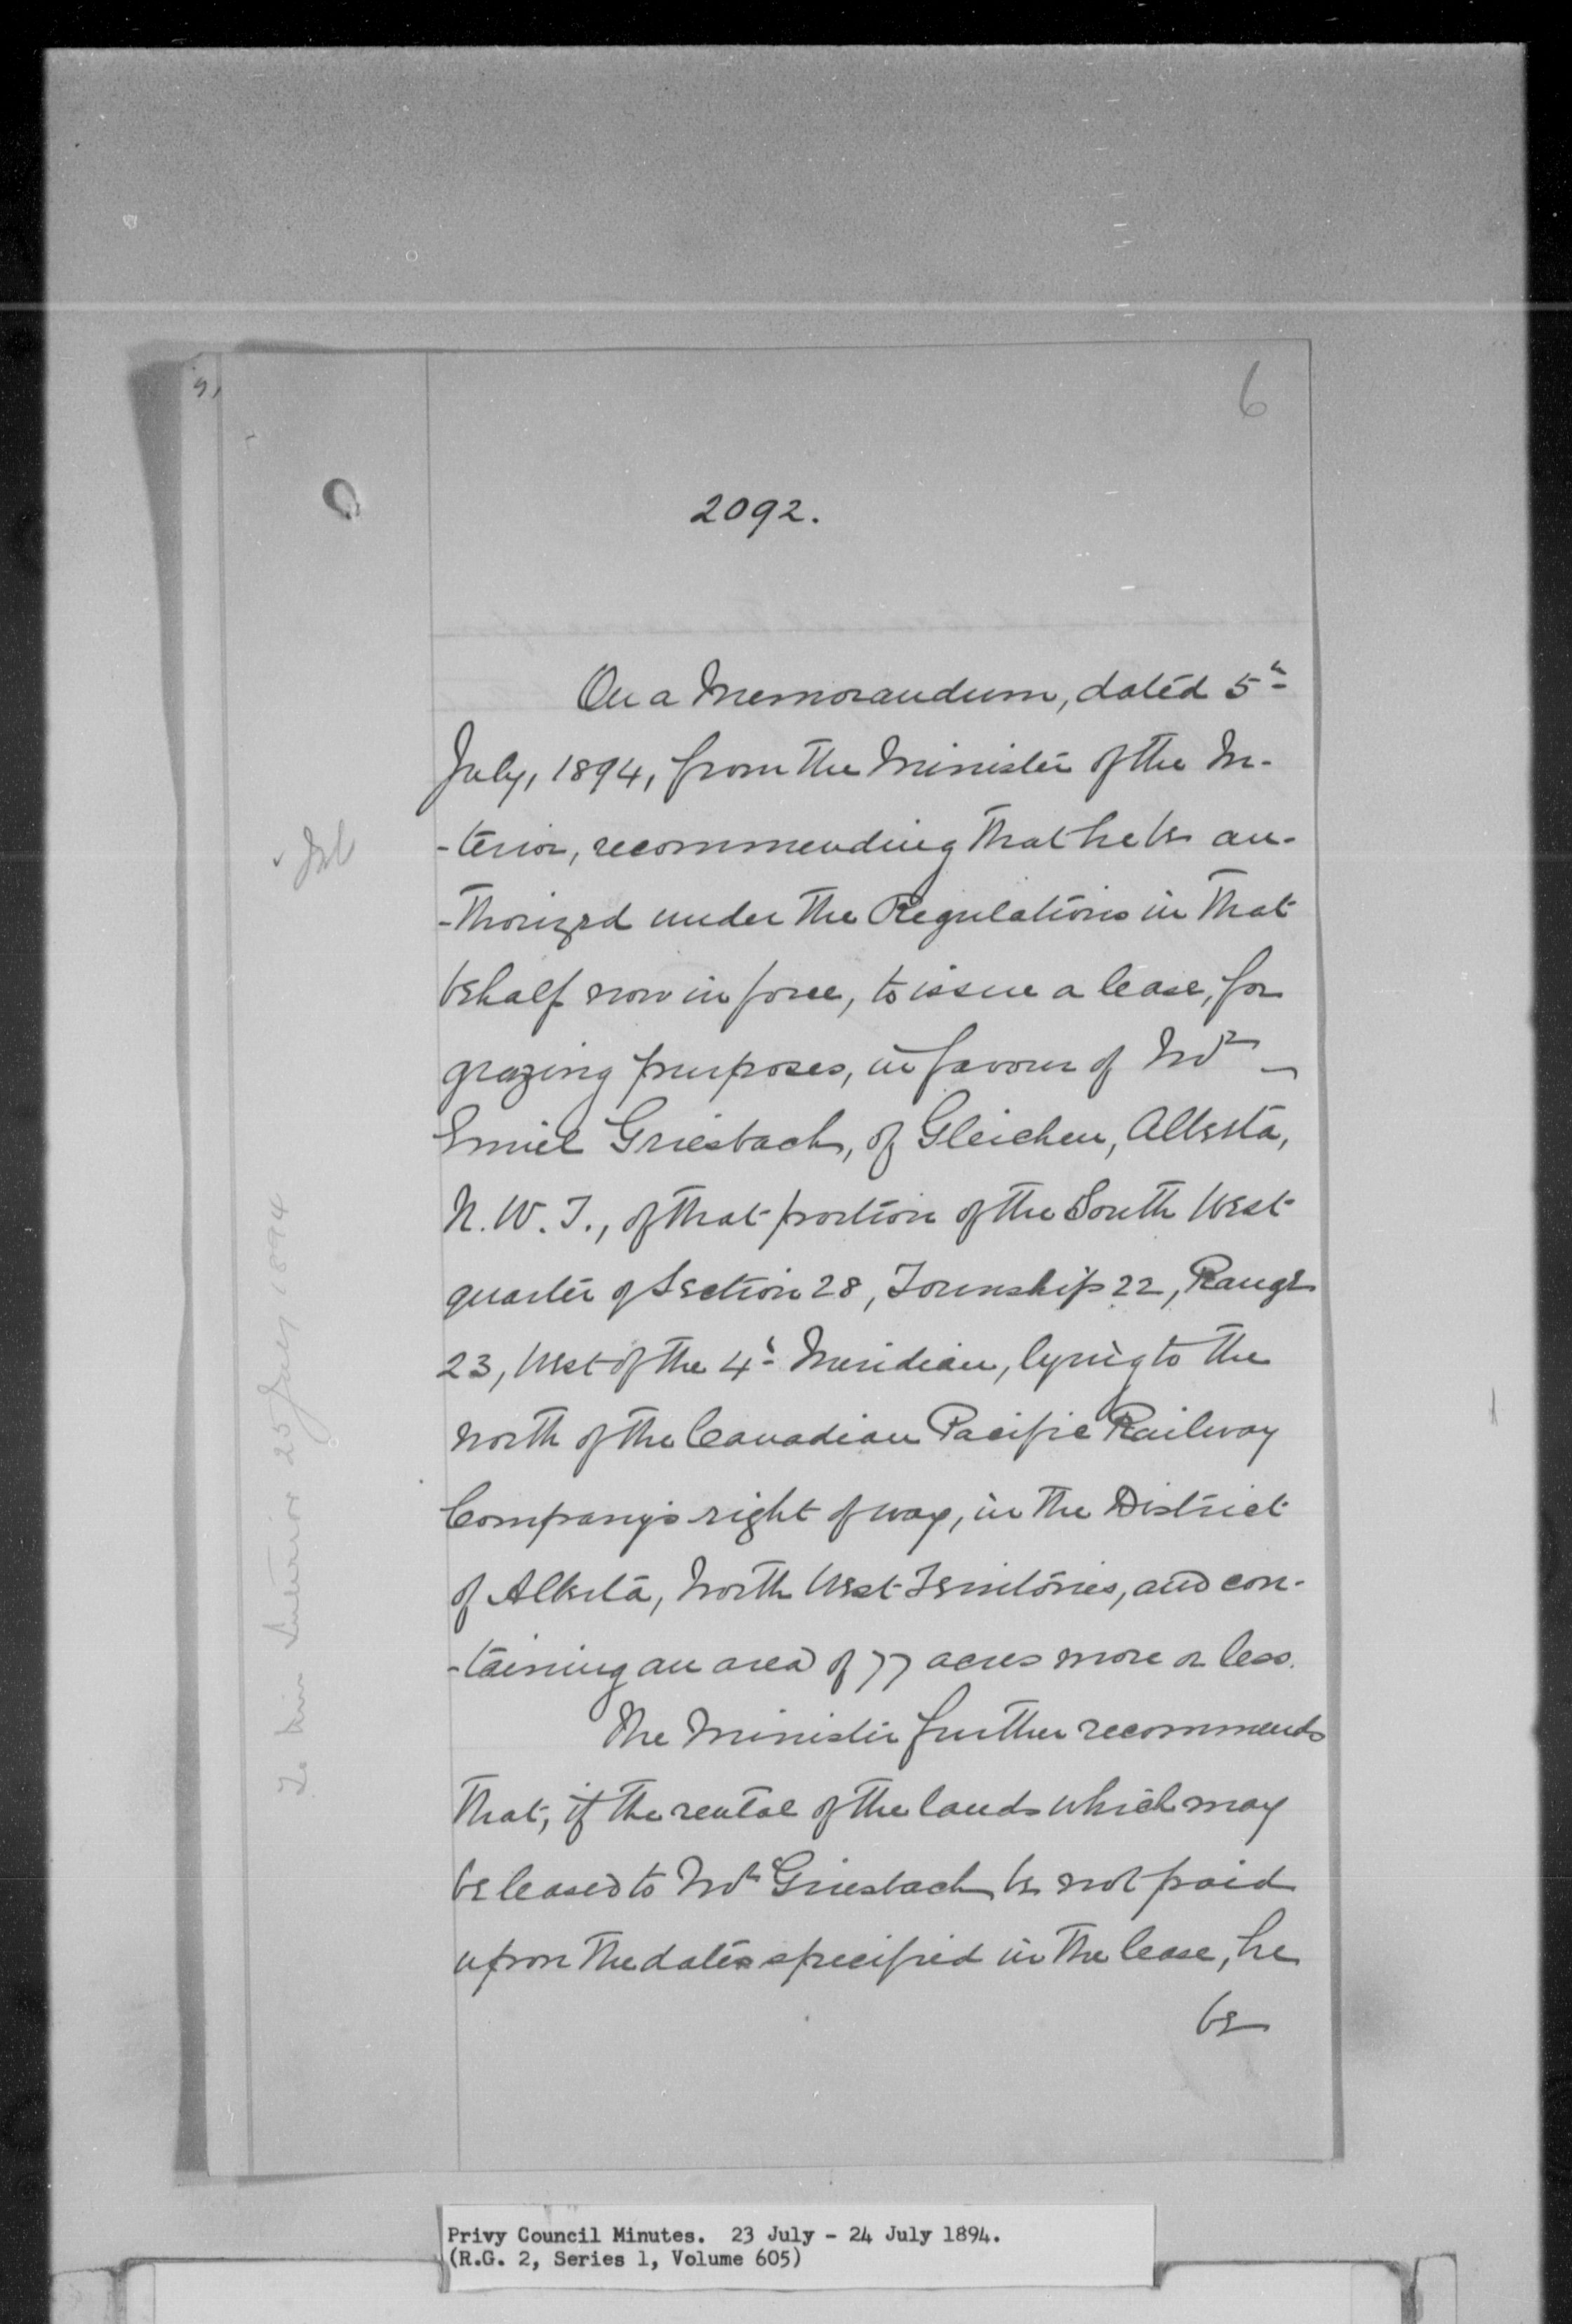 6
2092.
On a Memorandum, dated 5th
July, 1894, from the Minister of the In-
-terior, recommending that he be au-
-thorized under the Regulations in that
behalf now in force, to issue a lease, for
grazing purposes, in favour of Mr
Emil Griesbach, of Gleichen, Alberta,
N. W. T., of that portion of the South West
quarter of Section 28, Township 22, Range
23, West of the 4th Meridian, lying to the
north of the Canadian Pacific Railway
Company's right of way, in the District
of Alberta, North West Territories, and con-
-taining an area of 77 acres more or less.
The Minister further recommends
that, if the rental of the lands which may
be leased to Mr Griesbach be not paid
upon the dates specified in the lease, he
be
To Min Interior 25 July 1894
Privy Council Minutes. 23 July - 24 July 1894.
(R.G. 2, Series 1, Volume 605)